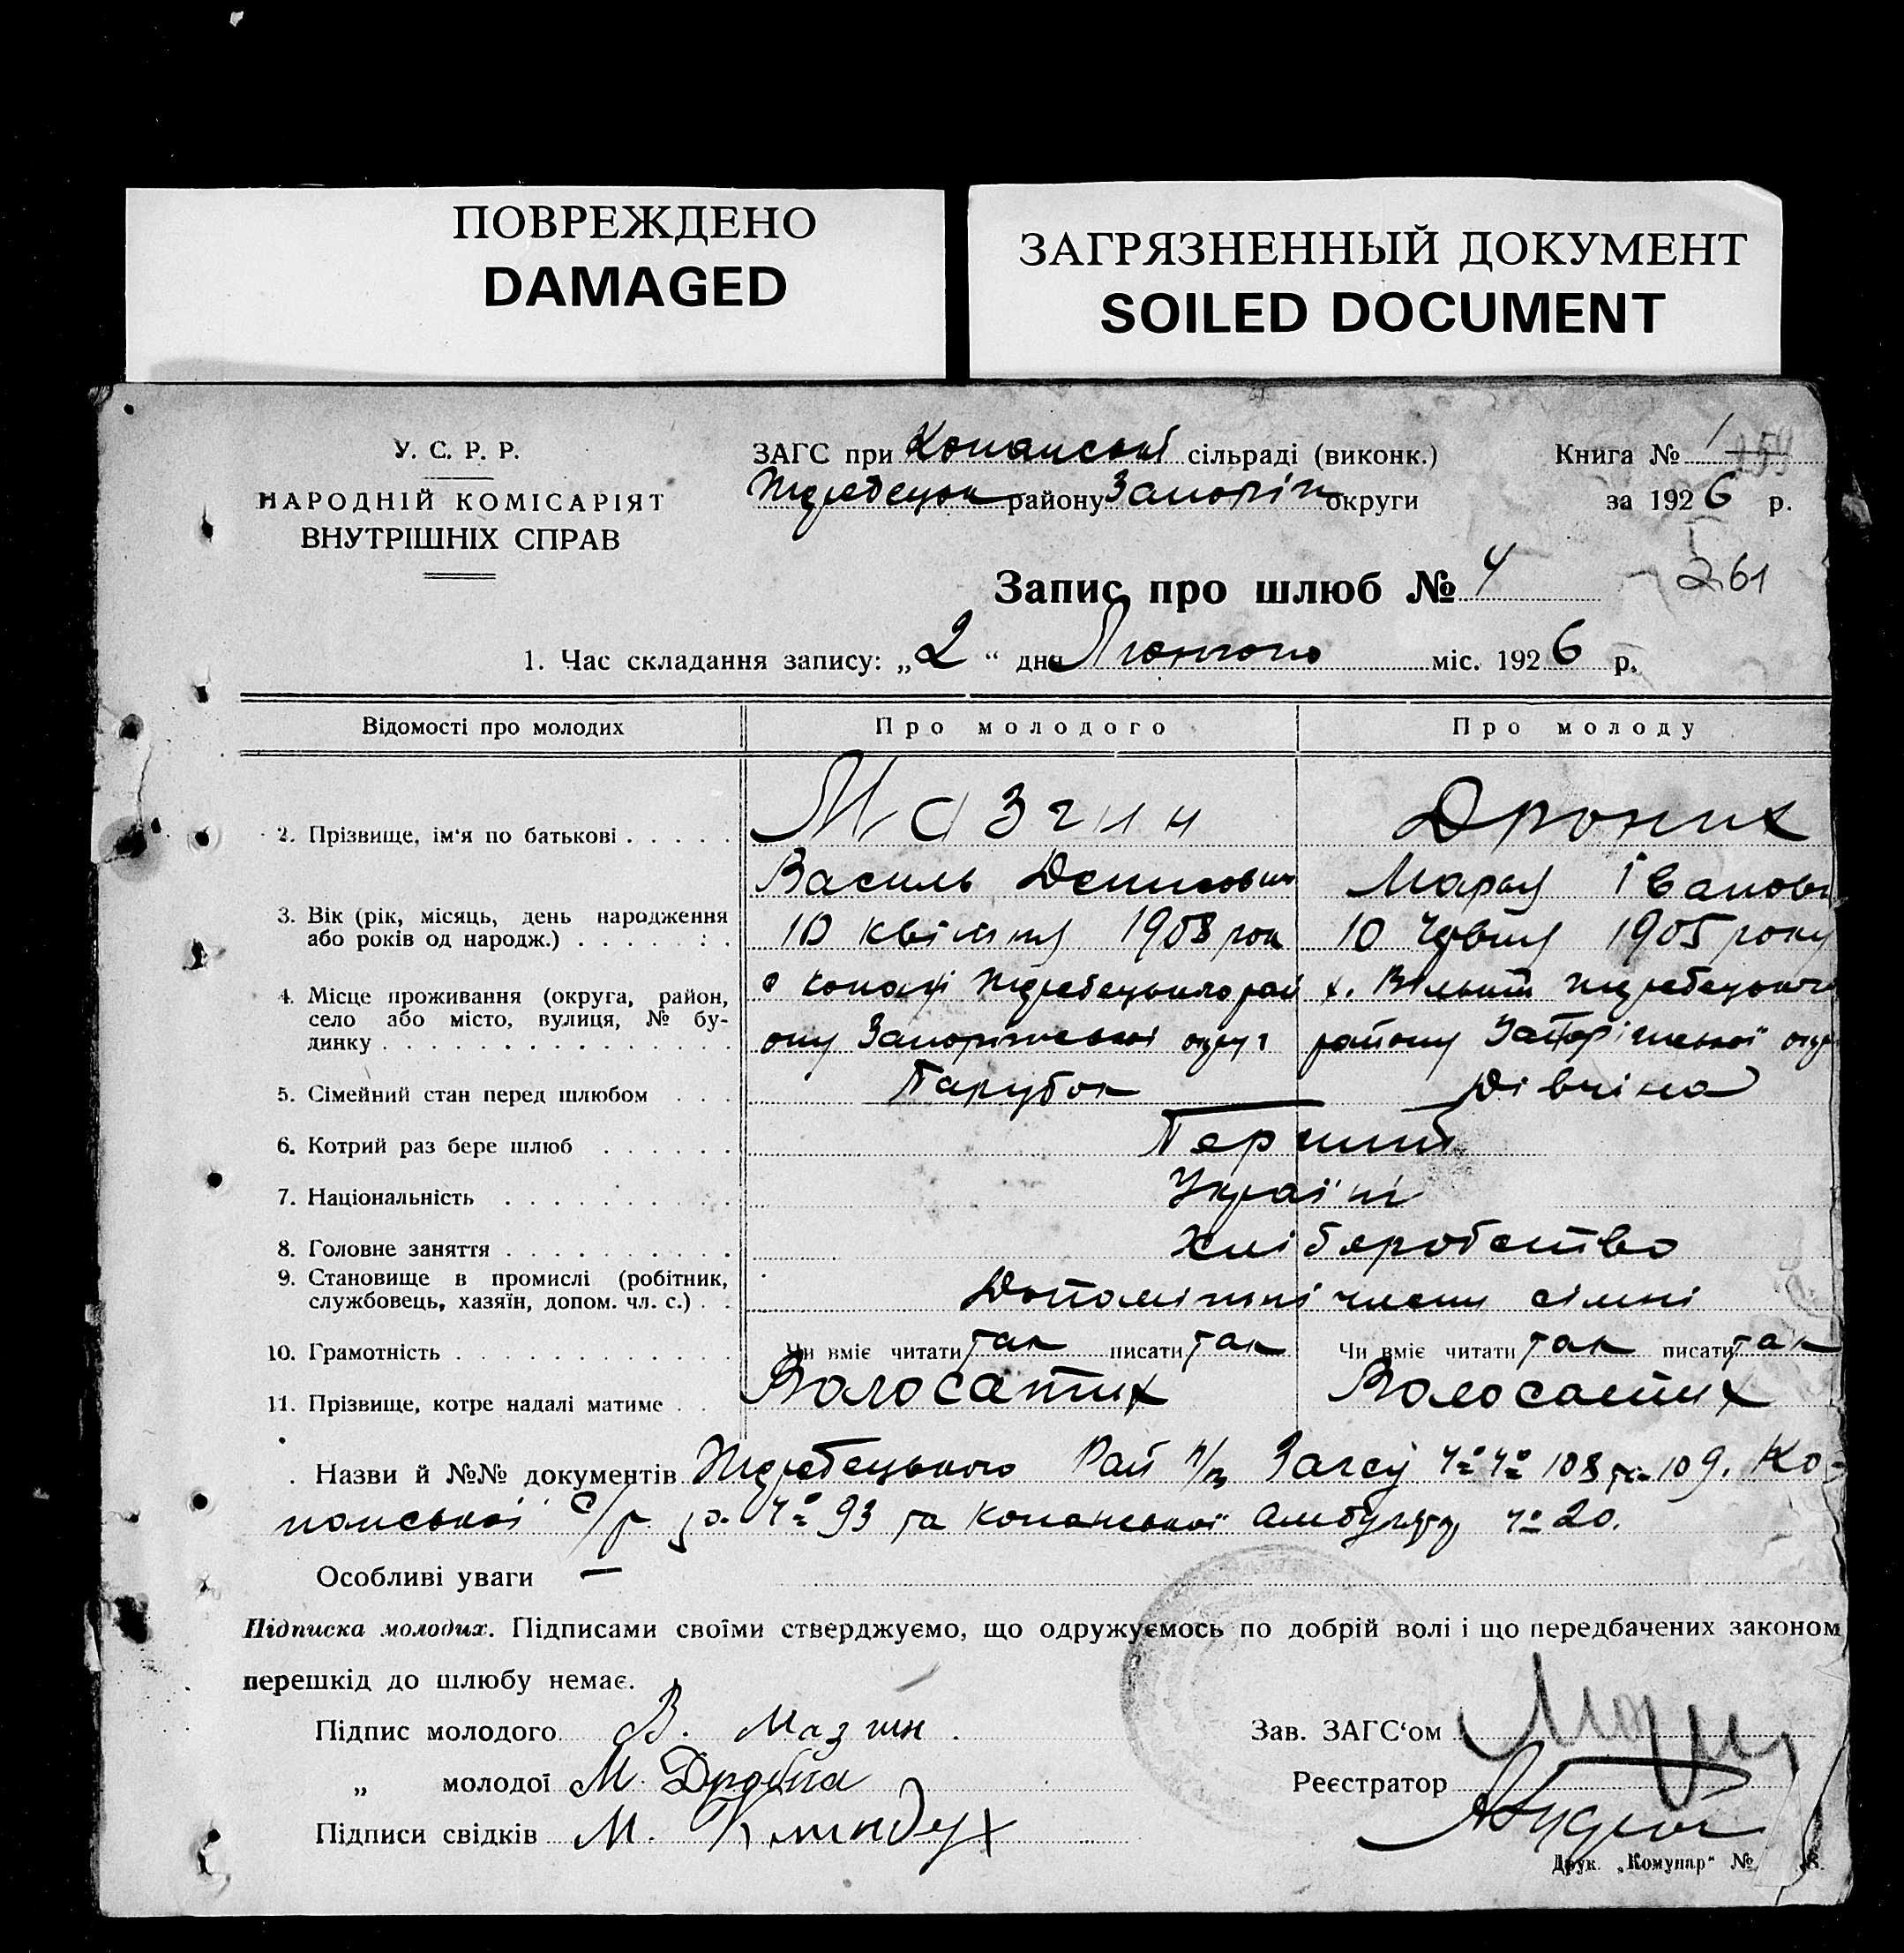 ПОВРЕЖДЕНО
DAMAGED
ЗАГРЯЗНЕННЫЙ ДОКУМЕНТ
SOILED DOCUMENT
У. С. Р. Р.
НАРОДНІЙ КОМІСАРІЯТ
ВНУТРІШНІХ СПРАВ
ЗАГС при Копанські сільраді (виконк.)
Жеребецьк району Запоріж округи
Книга № 1
за 1926 р.
Запис про шлюб № 4
261
1. Час складання запису: „2“ дня Лютого міс. 1926 р.
Відомості про молодих Про молодого Про молоду
2. Прізвище, ім‘я по батькові Мазгин Дроних
Василь Денисович Марая Іванов
3. Вік (рік, місяць, день народження 10 квітня 1908 рок 10 Червня 1905 року
або років од народж.)
4. Місце проживання (округа, район, с Копані Жеребецького рай х. Вільний Жеребецького
село або місто, вулиця, № бу-
динку ону Запоріжської округ району Запоріжської окр
5. Сімейний стан перед шлюбом Парубок Дівчіна
6. Котрий раз бере шлюб Перший
7. Національність Україн
8. Головне заняття Хліборобство
9. Становище в промислі (робітник,
службовець, хазяїн, допом. чл. с.) Допоміжні члени сімні
10. Грамотність Чи вміє читати так писати так Чи вміє читати так писати так
11. Прізвище, котре надалі матиме Волосатих Волосатих
Назви й №№ документів Жеребецького Рай п/в Загсу №№ 108 та 109. Ко-
панської с/р за № 93 та Копанської Амбулят № 20.
Особливі уваги —
Підписка молодих. Підписами своїми стверджуємо, що одружуємось по добрій волі і що передбачених законом
перешкід до шлюбу немає.
Підпис молодого В. Мазгин.
Зав. ЗАГС‘ом
„ молодої М.
Реєстратор
Підписи свідків М.
Друк. „Комунар“ №